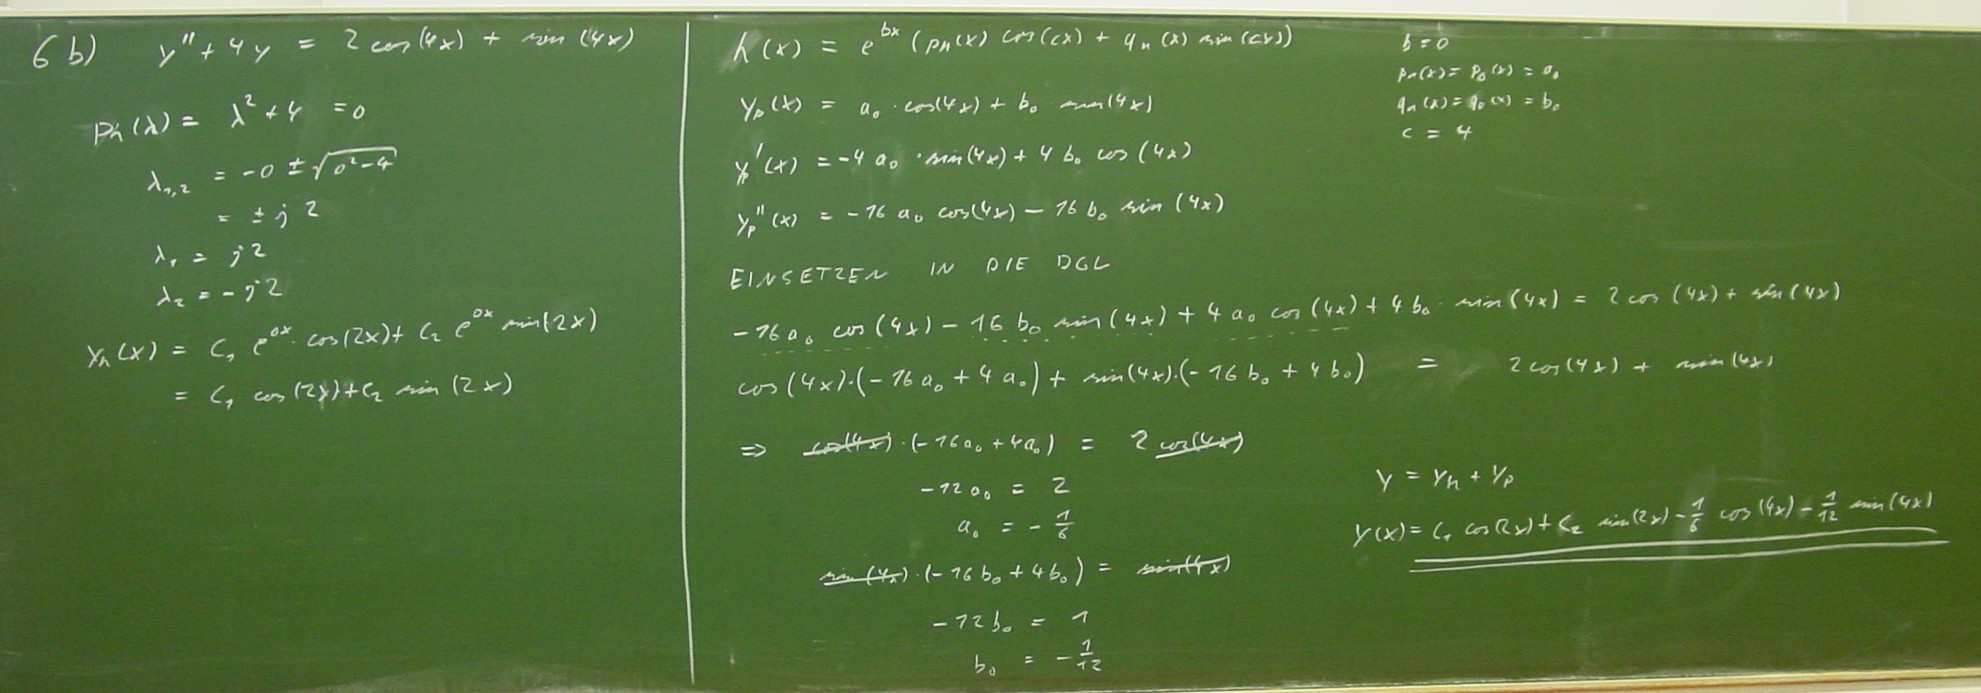 6 b) y'' + 4y = 2 cos(4x) + sin (4x)
Pn(λ) = λ² + 4 = 0
λ₁,₂ = -0 ± √(0² - 4)
= ± j 2
λ₁ = j2
λ₂ = -j2
yh(x) = C₁ e^0x · cos(2x) + C₂ e^0x sin(2x)
= C₁ cos(2x) + C₂ sin (2x)
h(x) = e^bx (pn(x) cos(cx) + qn(x) sin(cx))
yp(x) = a₀ · cos(4x) + b₀ sin(4x)
yp'(x) = -4 a₀ · sin(4x) + 4 b₀ cos (4x)
yp''(x) = -16 a₀ cos(4x) - 16 b₀ sin (4x)
EINSETZEN IN DIE DGL
-16a₀ cos (4x) - 16 b₀ sin (4x) + 4 a₀ cos (4x) + 4 b₀ · sin (4x) = 2 cos (4x) + sin (4x)
cos (4x)·(-16 a₀ + 4 a₀) + sin(4x)·(-16 b₀ + 4 b₀) = 2 cos(4x) + sin(4x)
⇒ cos(4x) · (-16a₀ + 4a₀) = 2 cos(4x)
-12 a₀ = 2
a₀ = - 1/6
sin (4x) · (-16 b₀ + 4 b₀) = sin(4x)
-12 b₀ = 1
b₀ = - 1/12
b = 0
pn(x) = p₀(x) = a₀
qn(x) = q₀(x) = b₀
c = 4
y = yh + yp
y(x) = C₁ cos(2x) + C₂ sin(2x) - 1/6 cos (4x) - 1/12 sin(4x)